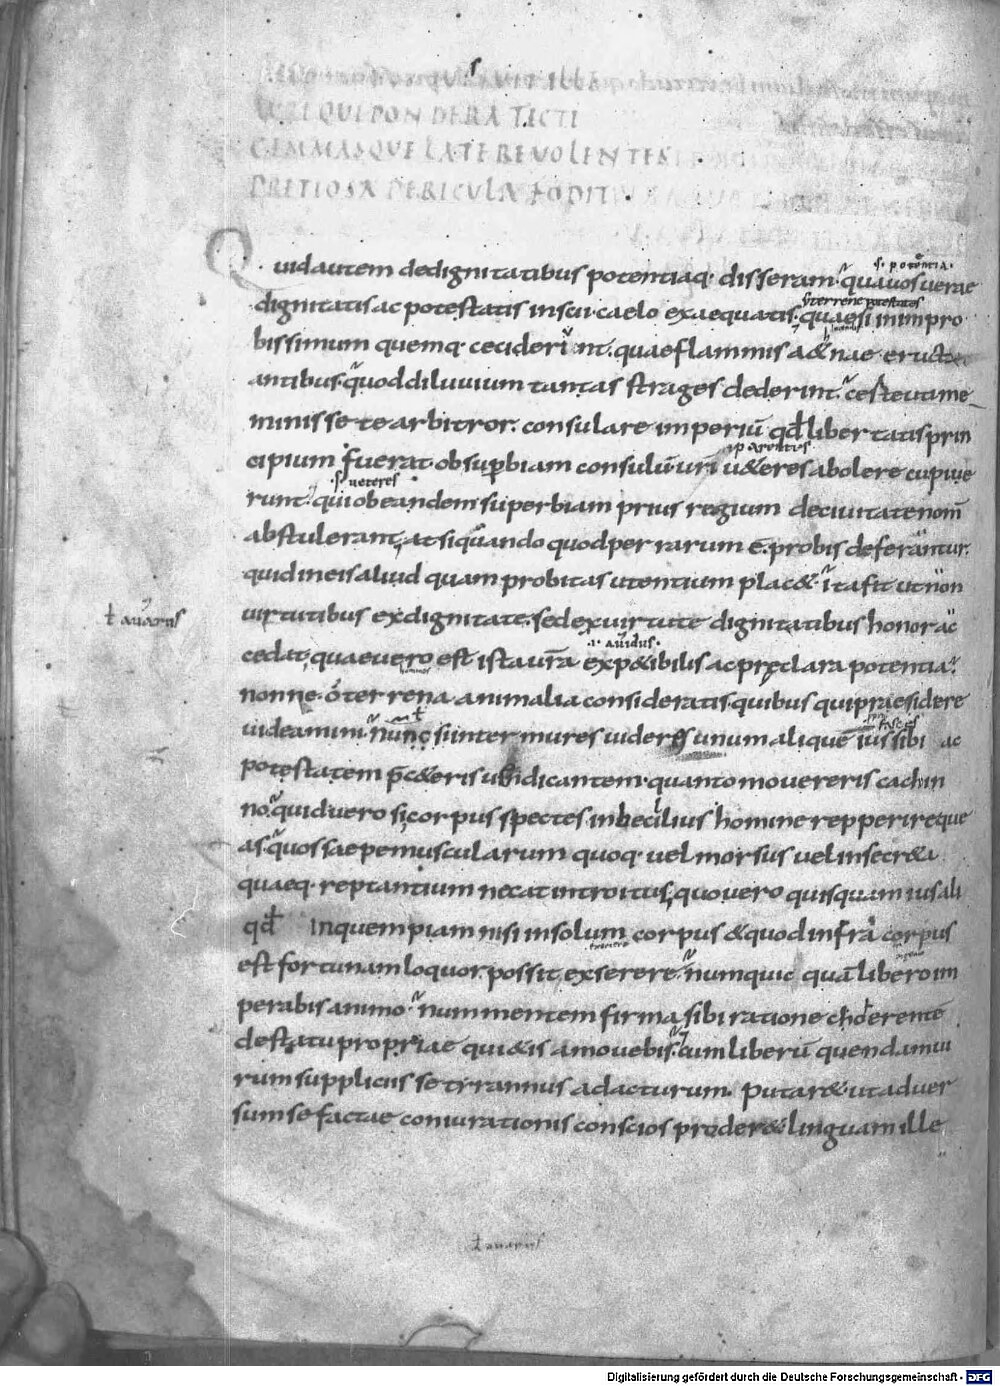 QUI PONDERA TECTI
GEMMASQUE LATERE VOLENTES
PRETIOSA PERICULA FODIT
s. potentia.
Quid autem de dignitatibus potentiaq· disseram· quauos uerae
dignitatis ac potestatis inscii· caelo exaequatis· quae si in inpro
bissimum quemq· ceciderint. quae flammis a&nae eructu
antibus· quod diluuium tantas strages dederint· certe uti me
minisse te arbitror. consulare imperiū qđ libertatis prin
parentes
cipium fuerat· ob superbiam consulū urī u&eres abolere cupiue
s. ueteres
runt· qui ob eandem superbiam prius regium de ciuitate nom̄
abstulerant, at si quando quod per rarum ē· probis deferantur.
quid in eis aliud quam probitas utentium plac&· ita fit ut non
ł auarus
uirtutibus ex dignitate· sed ex uirtute dignitatibus honor ac
.i. auidus.
cedat, quae uero est ista urā exp&ibilis ac pręclara potentia·
nonne· o terrena animalia consideratis· quibus qui praesidere
uideamini· nunc si inter mures uideres unum aliquē ius sibi ac
potestatem p̄c&eris uindicantem· quanto mouereris cachin
no· quid uero si corpus spectes inbecillius homine repperire que
as· quos saepe muscularum quoq· uel morsus uel in secr&a
quaeq· reptantium necat introitus, quo uero quisquam ius ali
qđ in quempiam nisi in solum corpus & quod infra corpus
est fortunam loquor. possit exserere· numquic quā libero im
perabis animo· num mentem firma sibi ratione coherentē
de statu propriae qui&is amouebis· cum liberū quendam ui
rum suppliciis se tyrannus adacturum· putar&· ut aduer
sum se factae coniurationis conscios proder&· linguam ille
ł auarus
Digitalisierung gefördert durch die Deutsche Forschungsgemeinschaft - DFG